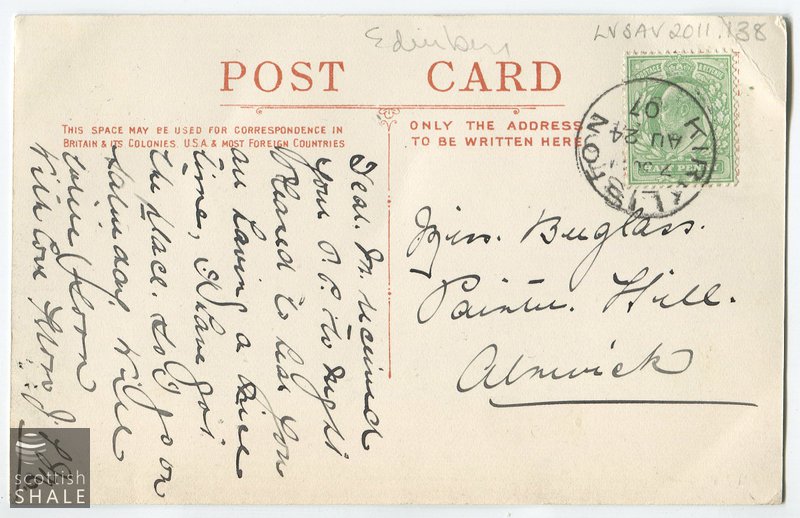 Edinburgh
LVSAV2011.138
POST CARD
THIS SPACE MAY BE USED FOR CORRESPONDENCE IN
BRITAIN & ITS COLONIES, U.S.A. & MOST FOREIGN COUNTRIES
ONLY THE ADDRESS
TO BE WRITTEN HERE
HALF PENNY
KIRKLISTON
AU 24
07
Dear M received
your P.P. to night
pleased to hear you
are having a nice
time, I have got
the place. so I go on
Saturday will
write soon
with love from J
Miss. Buglass.
Painter Hill.
Alnwick
scottish
SHALE